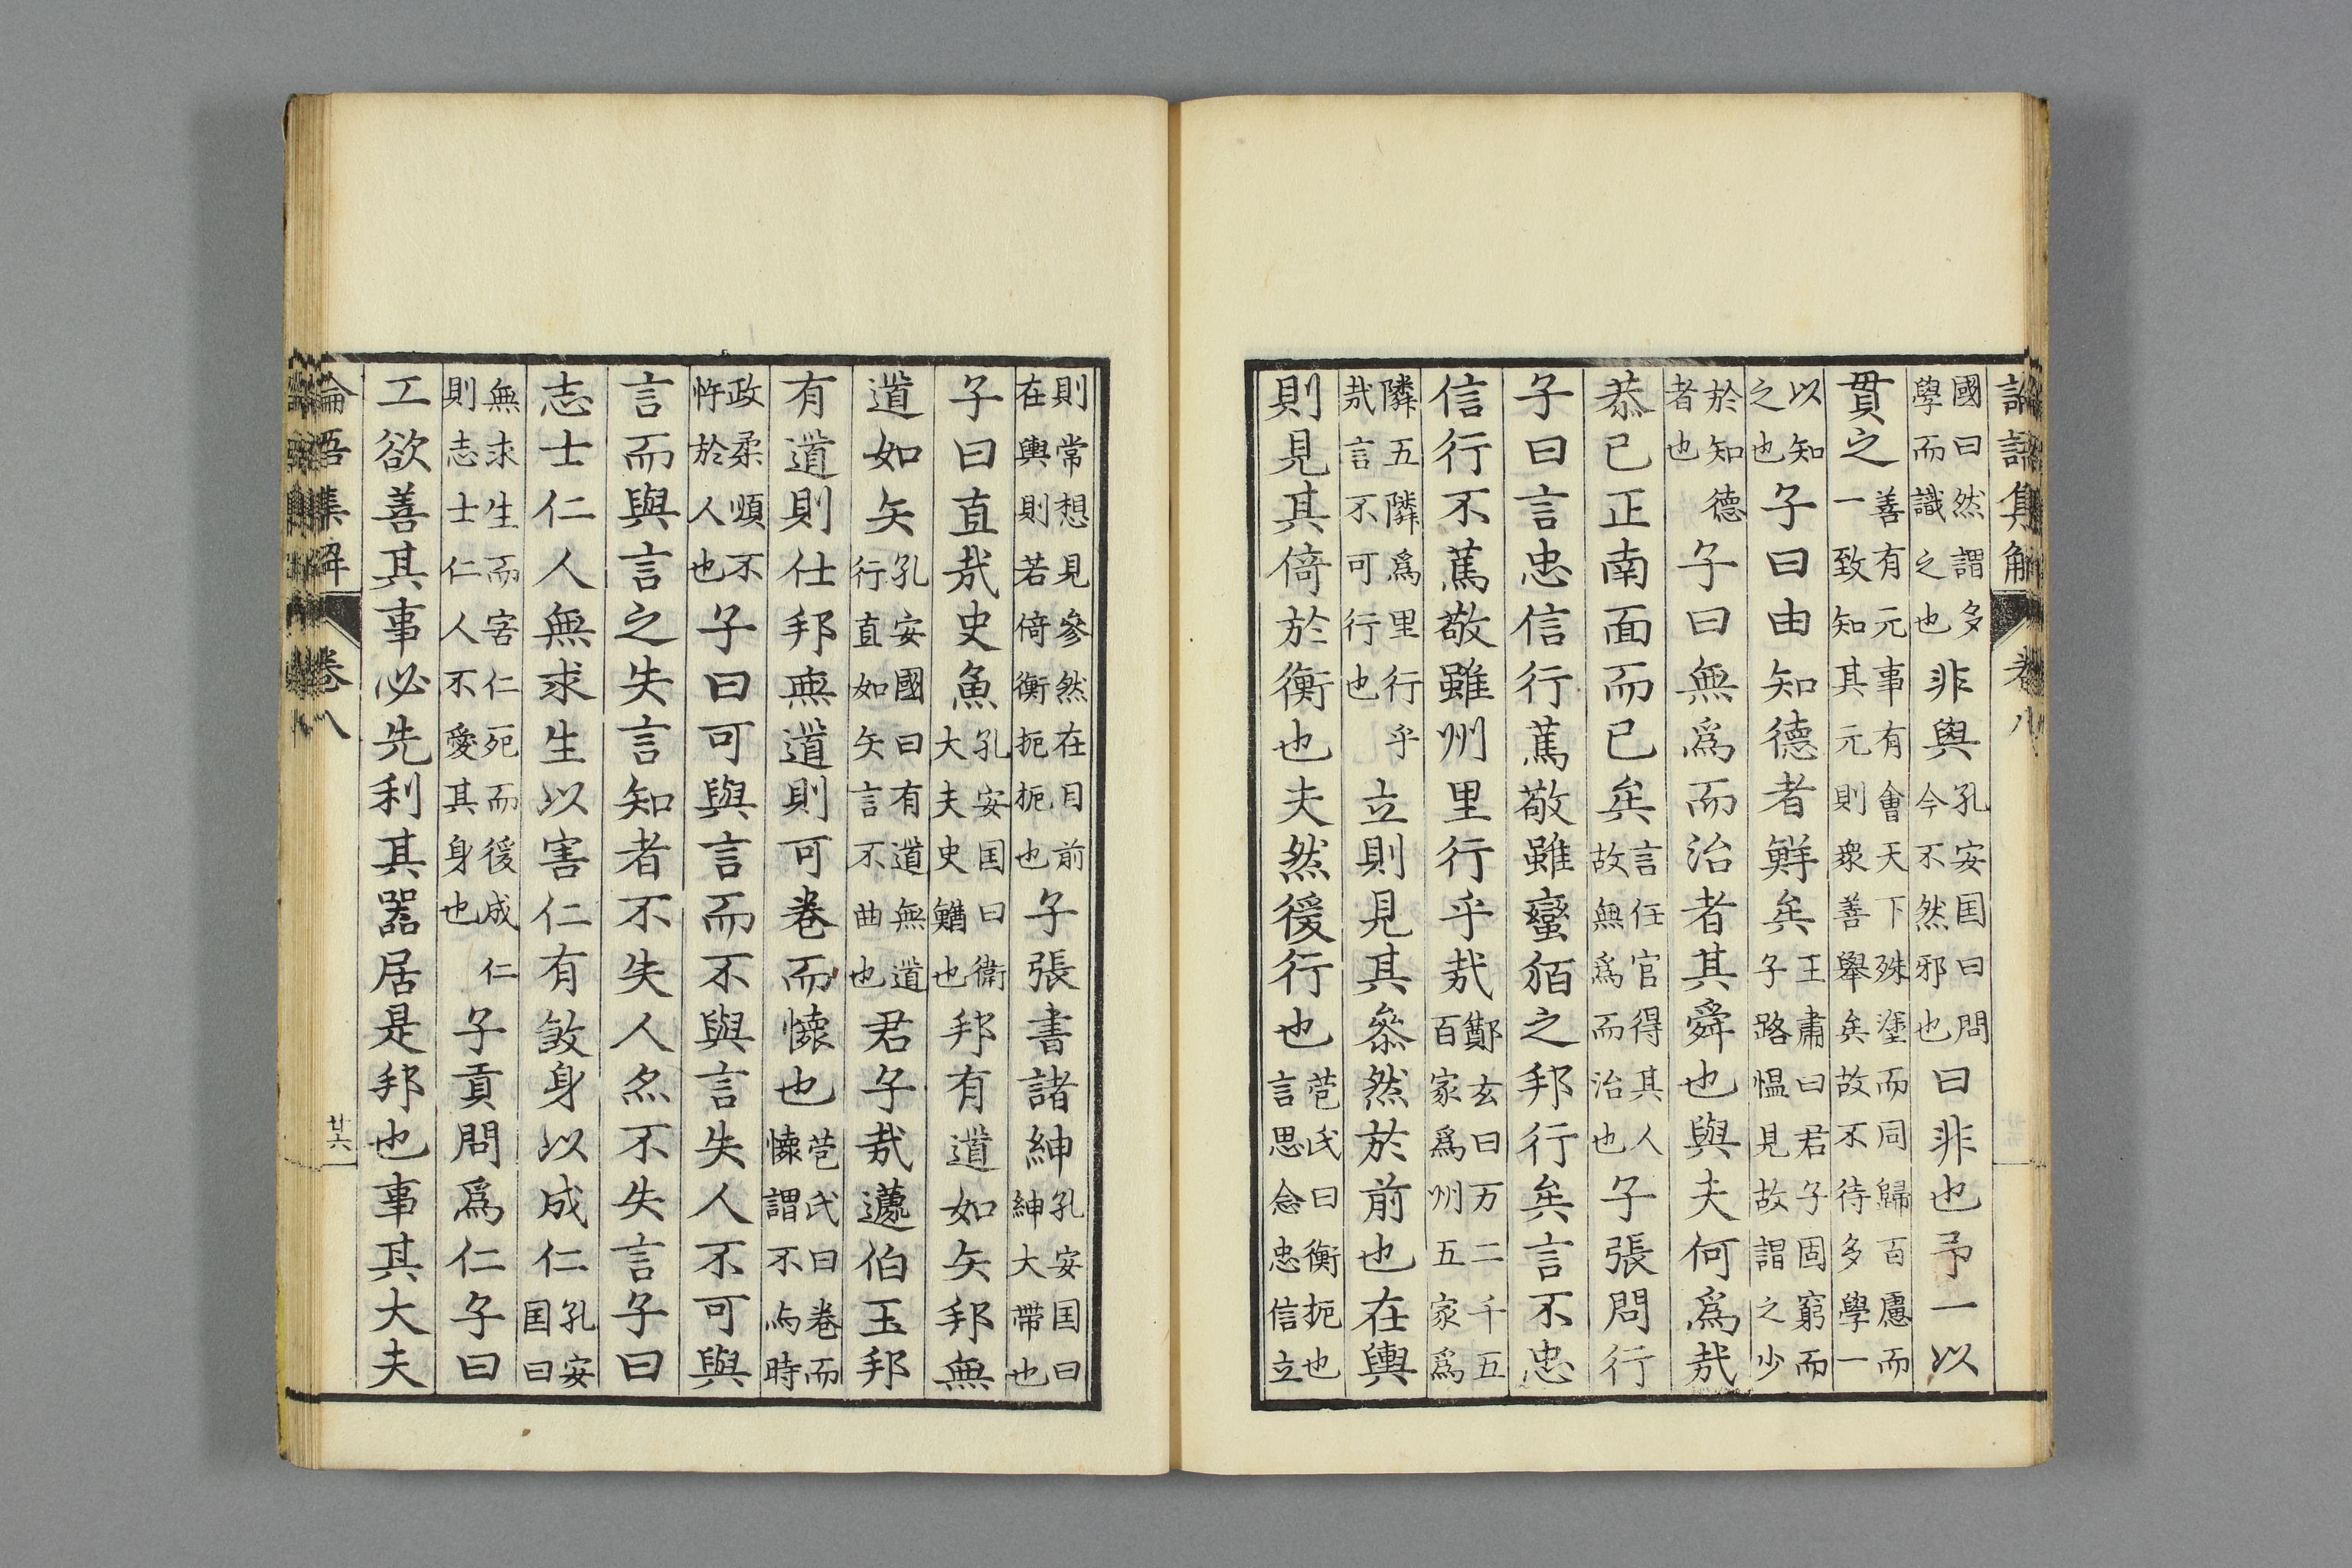 論語集解 卷八
國曰然謂多
學而識之也
非與
孔安囯曰問
今不然邪也
曰非也予一以
貫之
善有元事有會天下殊塗而同歸百慮而
一致知其元則衆善舉矣故不待多學一
以知
之也
子曰由知德者鮮矣
王肅曰君子固窮而
子路愠見故謂之少
於知德
者也
子曰無爲而治者其舜也與夫何爲哉
恭已正南面而已矣
言任官得其人
故無爲而治也
子張問行
子曰言忠信行篤敬雖蠻貊之邦行矣言不忠
信行不篤敬雖州里行乎哉
鄭玄曰万二千五
百家爲州五家爲
隣五隣爲里行乎
哉言不可行也
立則見其叅然於前也在輿
則見其倚於衡也夫然後行也
苞氏曰衡扼也
言思念忠信立
則常想見參然在目前
在輿則若倚衡扼扼也
子張書諸紳
孔安囯曰
紳大帶也
子曰直哉史魚
孔安囯曰衛
大夫史鰌也
邦有道如矢邦無
道如矢
孔安國曰有道無道
行直如矢言不曲也
君子哉蘧伯玉邦
有道則仕邦無道則可卷而懷也
苞氏曰卷而
懷謂不与時
政柔順不
忤於人也
子曰可與言而不與言失人不可與
言而與言之失言知者不失人亦不失言子曰
志士仁人無求生以害仁有敓身以成仁
孔安
囯曰
無求生而害仁死而後成仁
則志士仁人不愛其身也
子貢問爲仁子曰
工欲善其事必先利其器居是邦也事其大夫
論語集解 卷八 廿六